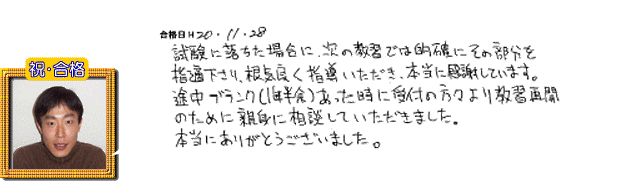 合格日 H20・11・28
試験に落ちた場合に、次の教習では的確にその部分を
指適下さり、根気良く指導いただき、本当に感謝しています。
途中ブランク(1年半余)あった時に受付の方々より教習再開
のために親身に相談していただきました。
本当にありがとうございました。
祝・合格